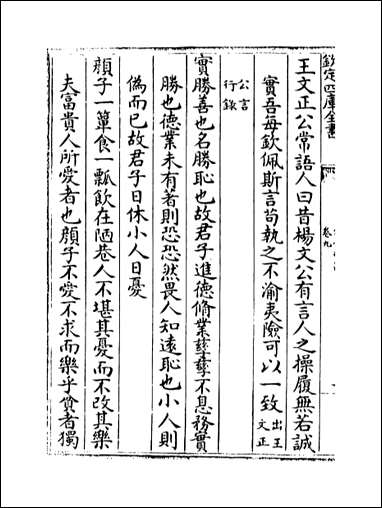 欽定四庫全書
卷九
王文正公常語人曰昔楊文公有言人之操履無若誠
實吾每欽佩斯言苟執之不渝夷險可以一致出王文正
公言行錄
實勝善也名勝恥也故君子進德脩業孳孳不息務實
勝也德業未有者則恐恐然畏人知遠恥也小人則
偽而已故君子日休小人日憂
顔子一簞食一瓢飲在陋巷人不堪其憂而不改其樂
夫富貴人所愛者也顔子不愛不求而樂乎貧者獨